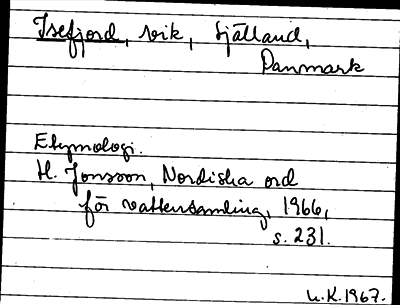 Isefjord, vik, Själland,
Danmark
Etymologi.
H. Jonsson, Nordiska ord
för vattensamling, 1966,
s. 231.
L.K. 1967.